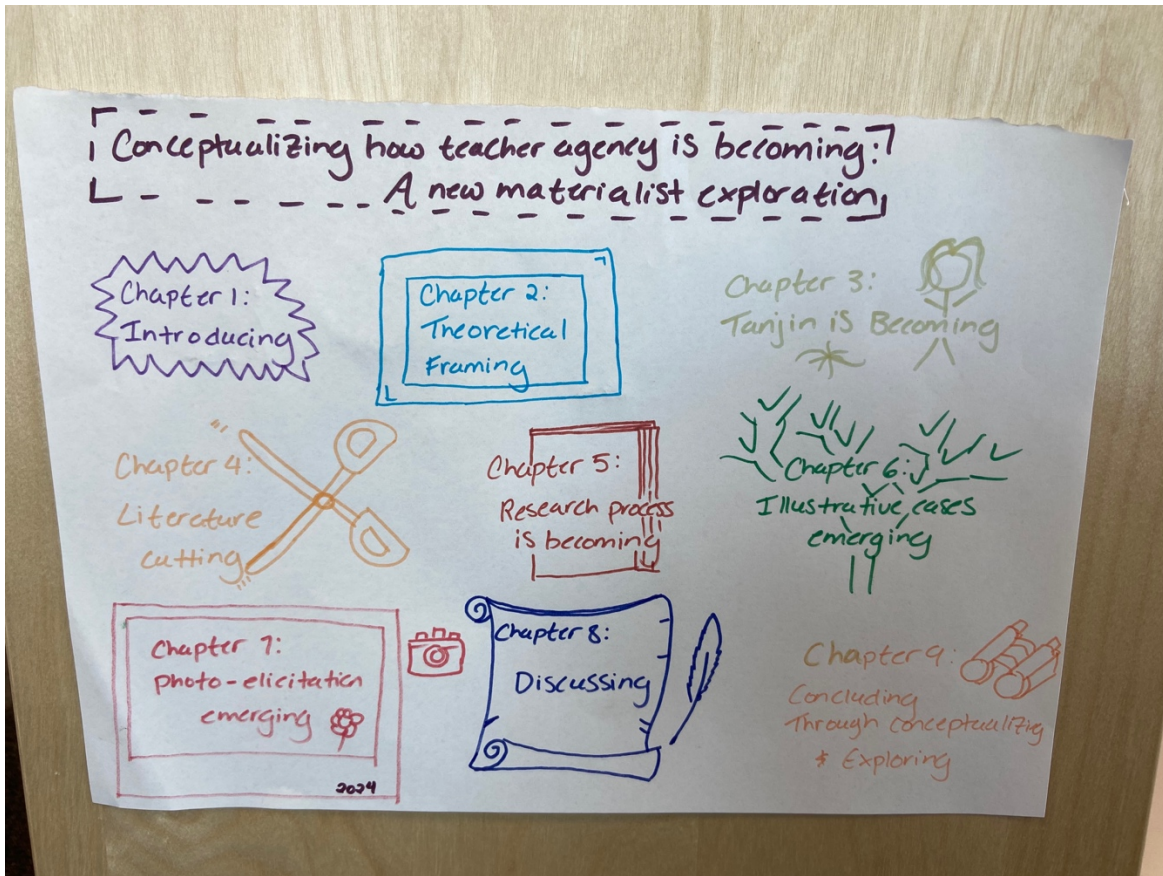 Conceptualizing how teacher agency is becoming:
A new materialist exploration
Chapter 1:
Introducing
Chapter 2:
Theoretical
Framing
Chapter 3:
Tanjin is Becoming
Chapter 4:
Literature
cutting
Chapter 5:
Research process
is becoming
Chapter 6:
Illustrative cases
emerging
Chapter 7:
Photo-elicitation
emerging
2024
Chapter 8:
Discussing
Chapter 9:
Concluding
Through conceptualizing
& Exploring